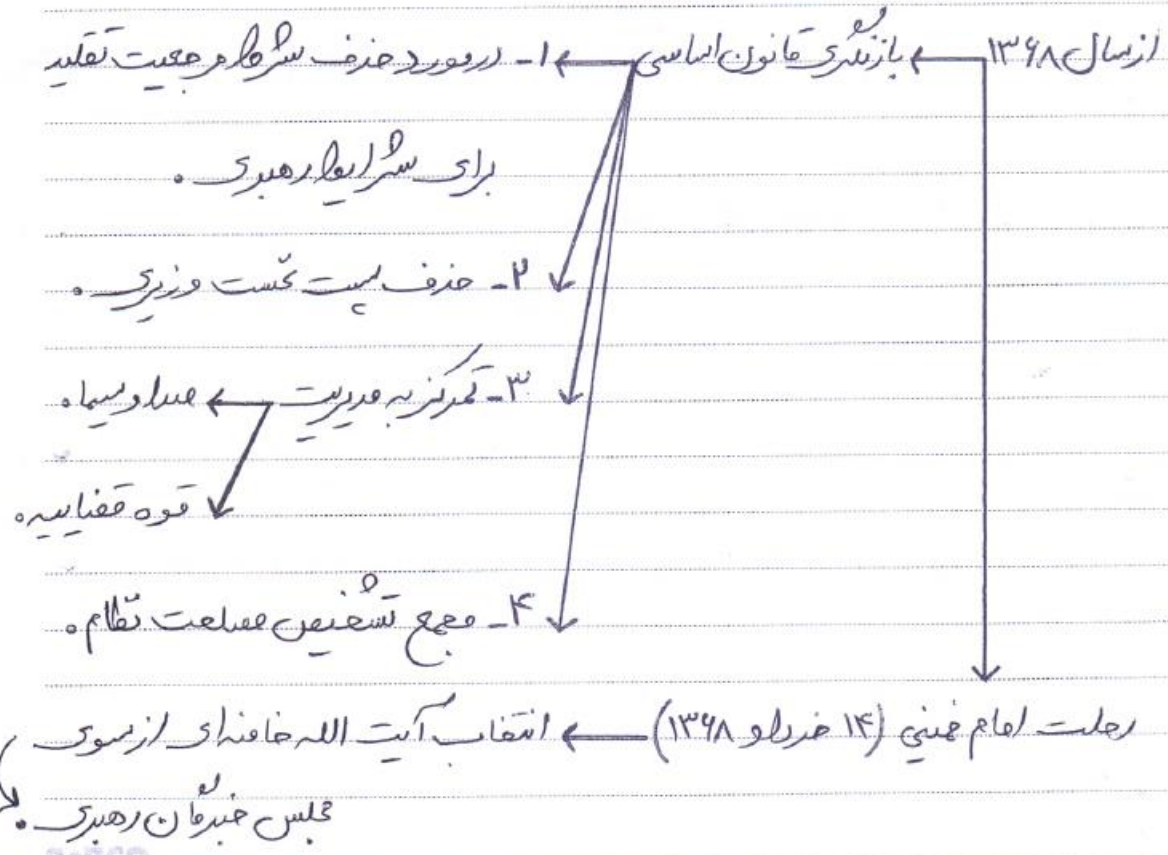 ازسال ۱۳۶۸ ← بازنگری قانون اساسی ← ۱- درمورد حذف شرط مرجعیت تقلید
برای شرایط رهبری.
۲- حذف پست نخست وزیری.
۳- تمرکز به مدیریت ← صدا و سیما.
قوه قضاییه.
۴- مجمع تشخیص مصلحت نظام.
رحلت امام خمینی (۱۴ خرداد ۱۳۶۸) ← انتخاب آیت الله خامنه‌ای از سوی
مجلس خبرگان رهبری.